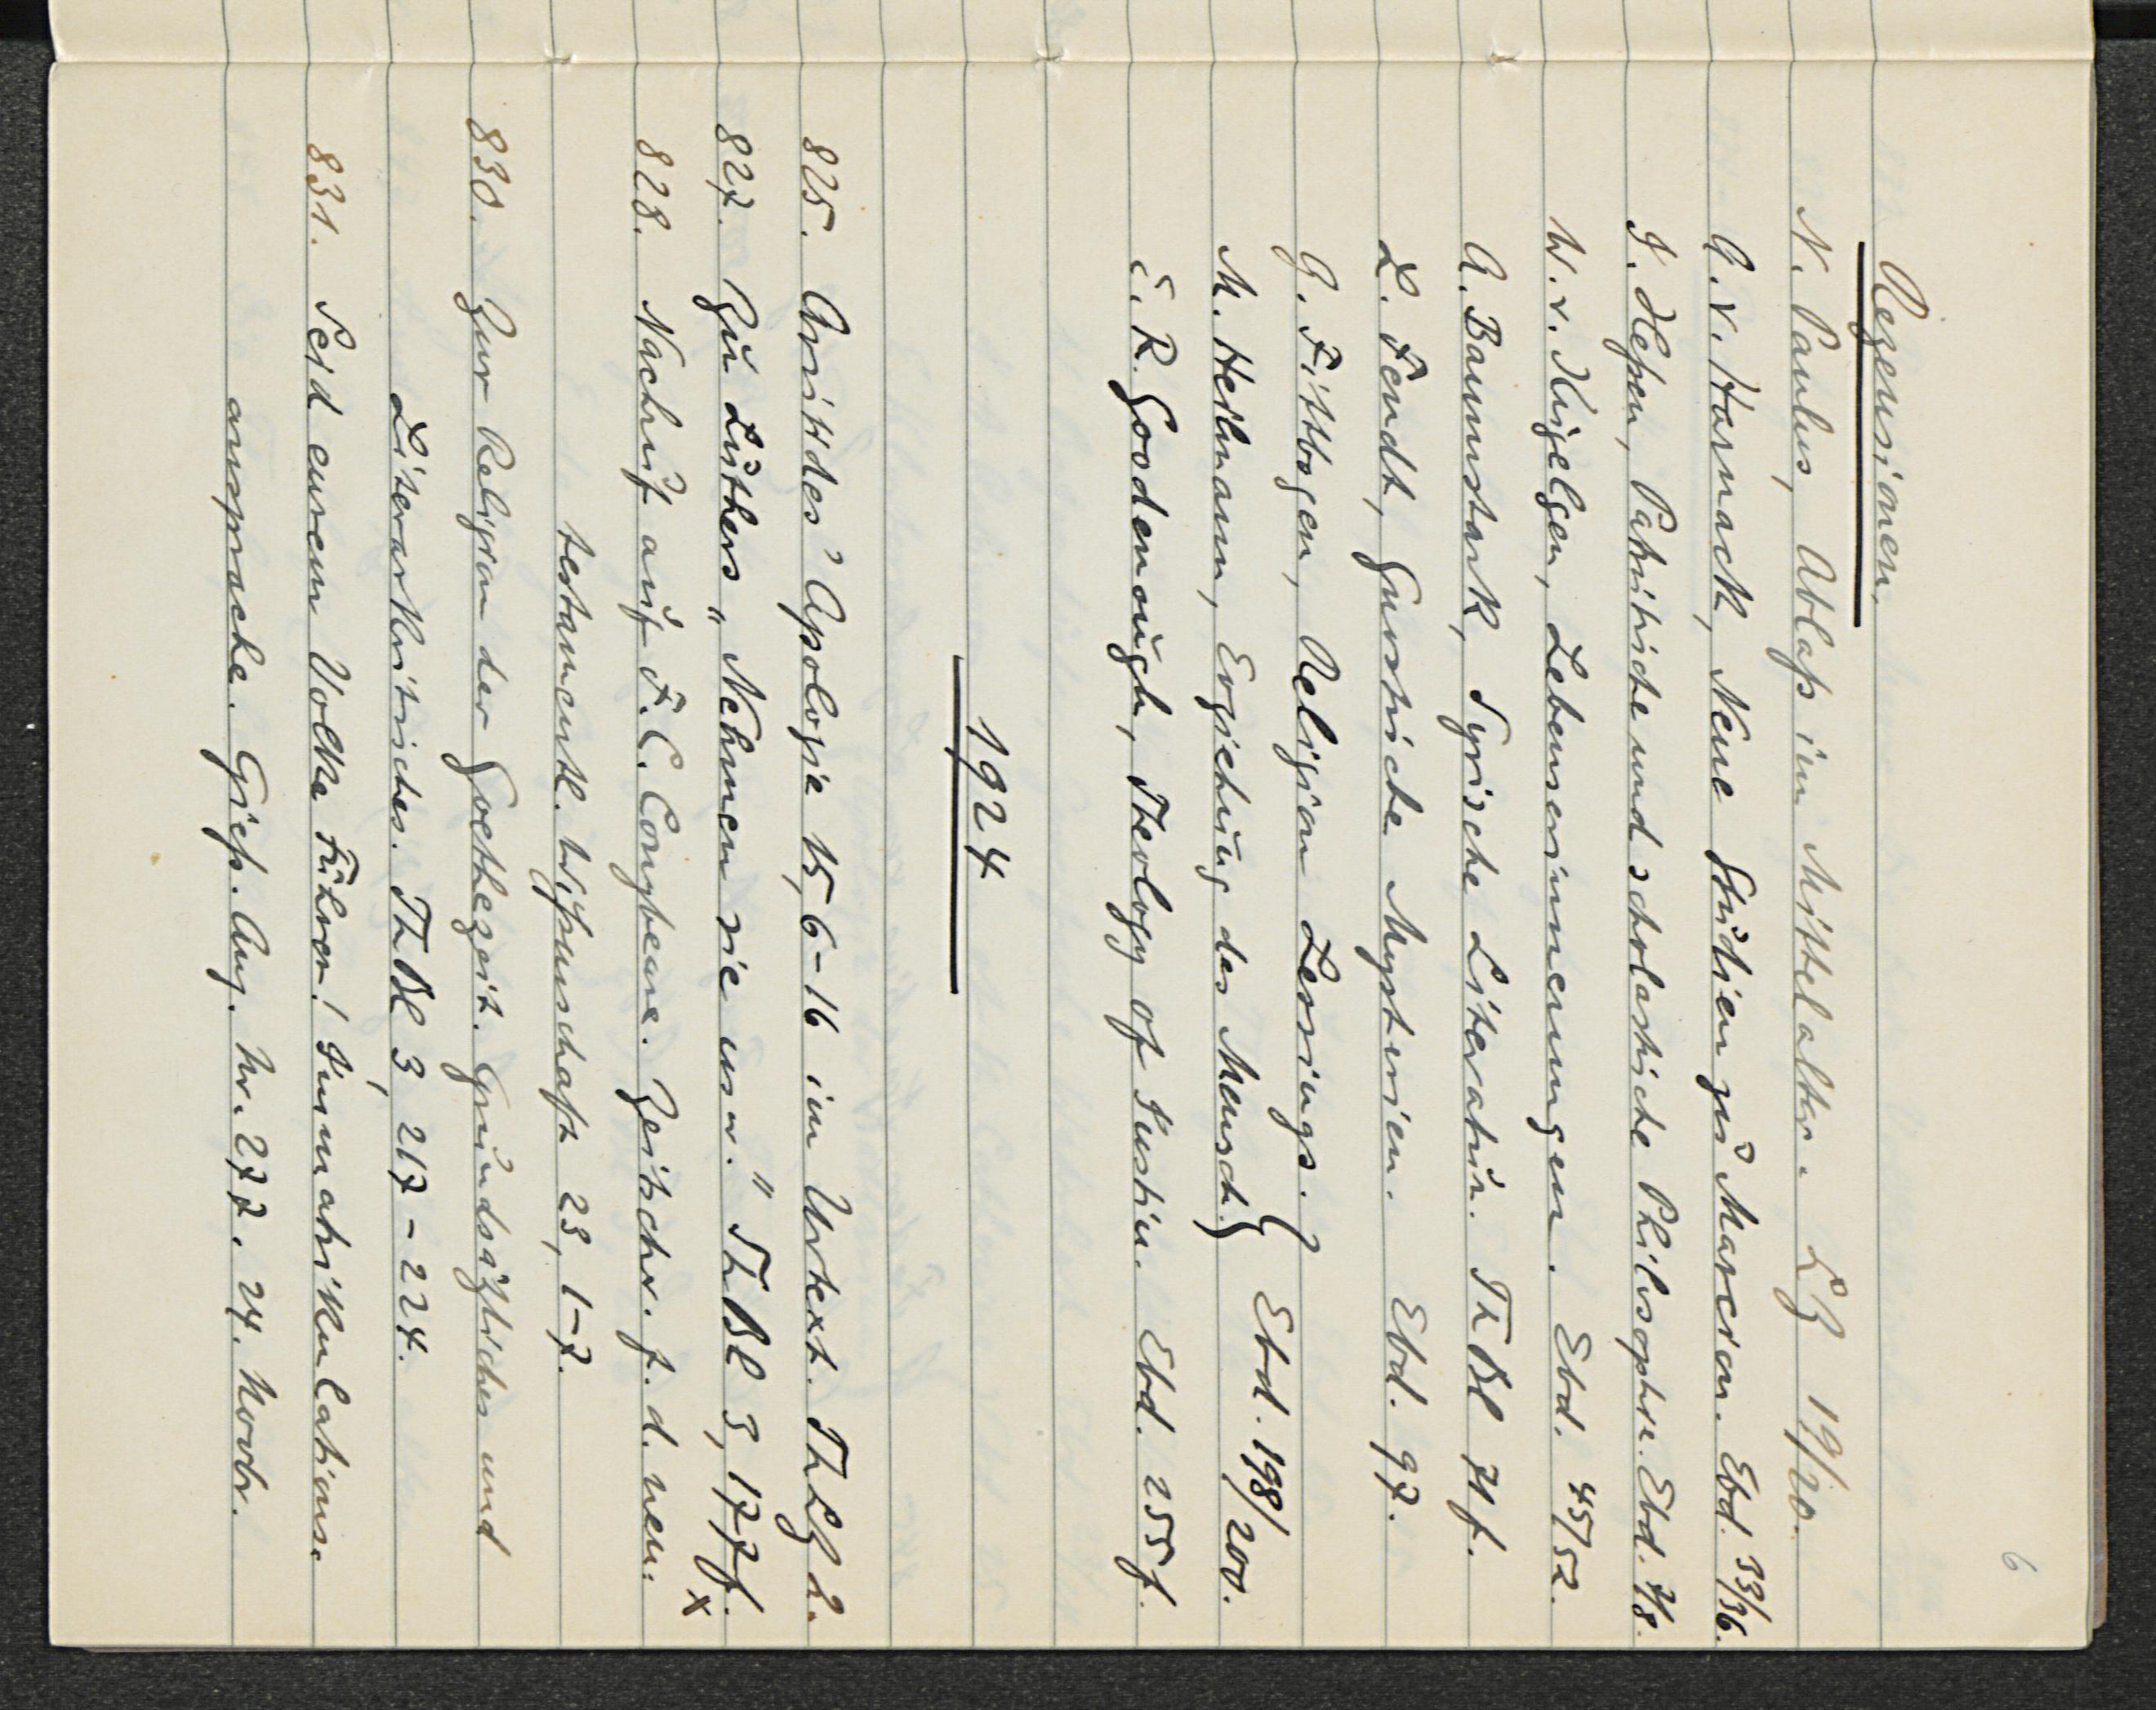 6
Rezensionen.
N. Paulus, Ablaß im Mittelalter. LZ 19/20.
A. v. Harnack, Neue Studien zu Marcion. Ebd. 33/36.
J. Hessen, Patristische und scholastische Philosophie. Ebd. 7/8.
W. v. Kügelgen, Lebenserinnerungen. Ebd. 45/52.
A. Baumstark, Syrische Literatur. ThBl 71f.
L. Fendt, Gnostische Mysterien. Ebd. 97.
G. Fittbogen, Religion Lessings. }
M. Heilmann, Erziehung des Mensch. } Ebd. 198/200.
E. R. Goodenough, Theology of Justin. Ebd. 255f.
1924
825. Aristides' Apologie 15,6-16 im Urtext. ThLZ 2.
827. Zu Luthers „Nehmen sie usw." ThBl 3, 177f.
828. Nachruf auf F. C. Conybeare. Zeitschr. f. d. neu- x
testamentl. Wissenschaft 23, 1-7.
830. Zur Religion der Goethezeit. Grundsätzliches und
Literarkritisches. ThBl 3, 217-224.
831. Seid eurem Volke Führer! Immatrikulations-
ansprache. Gieß. Anz. Nr. 277. 24. Novbr.